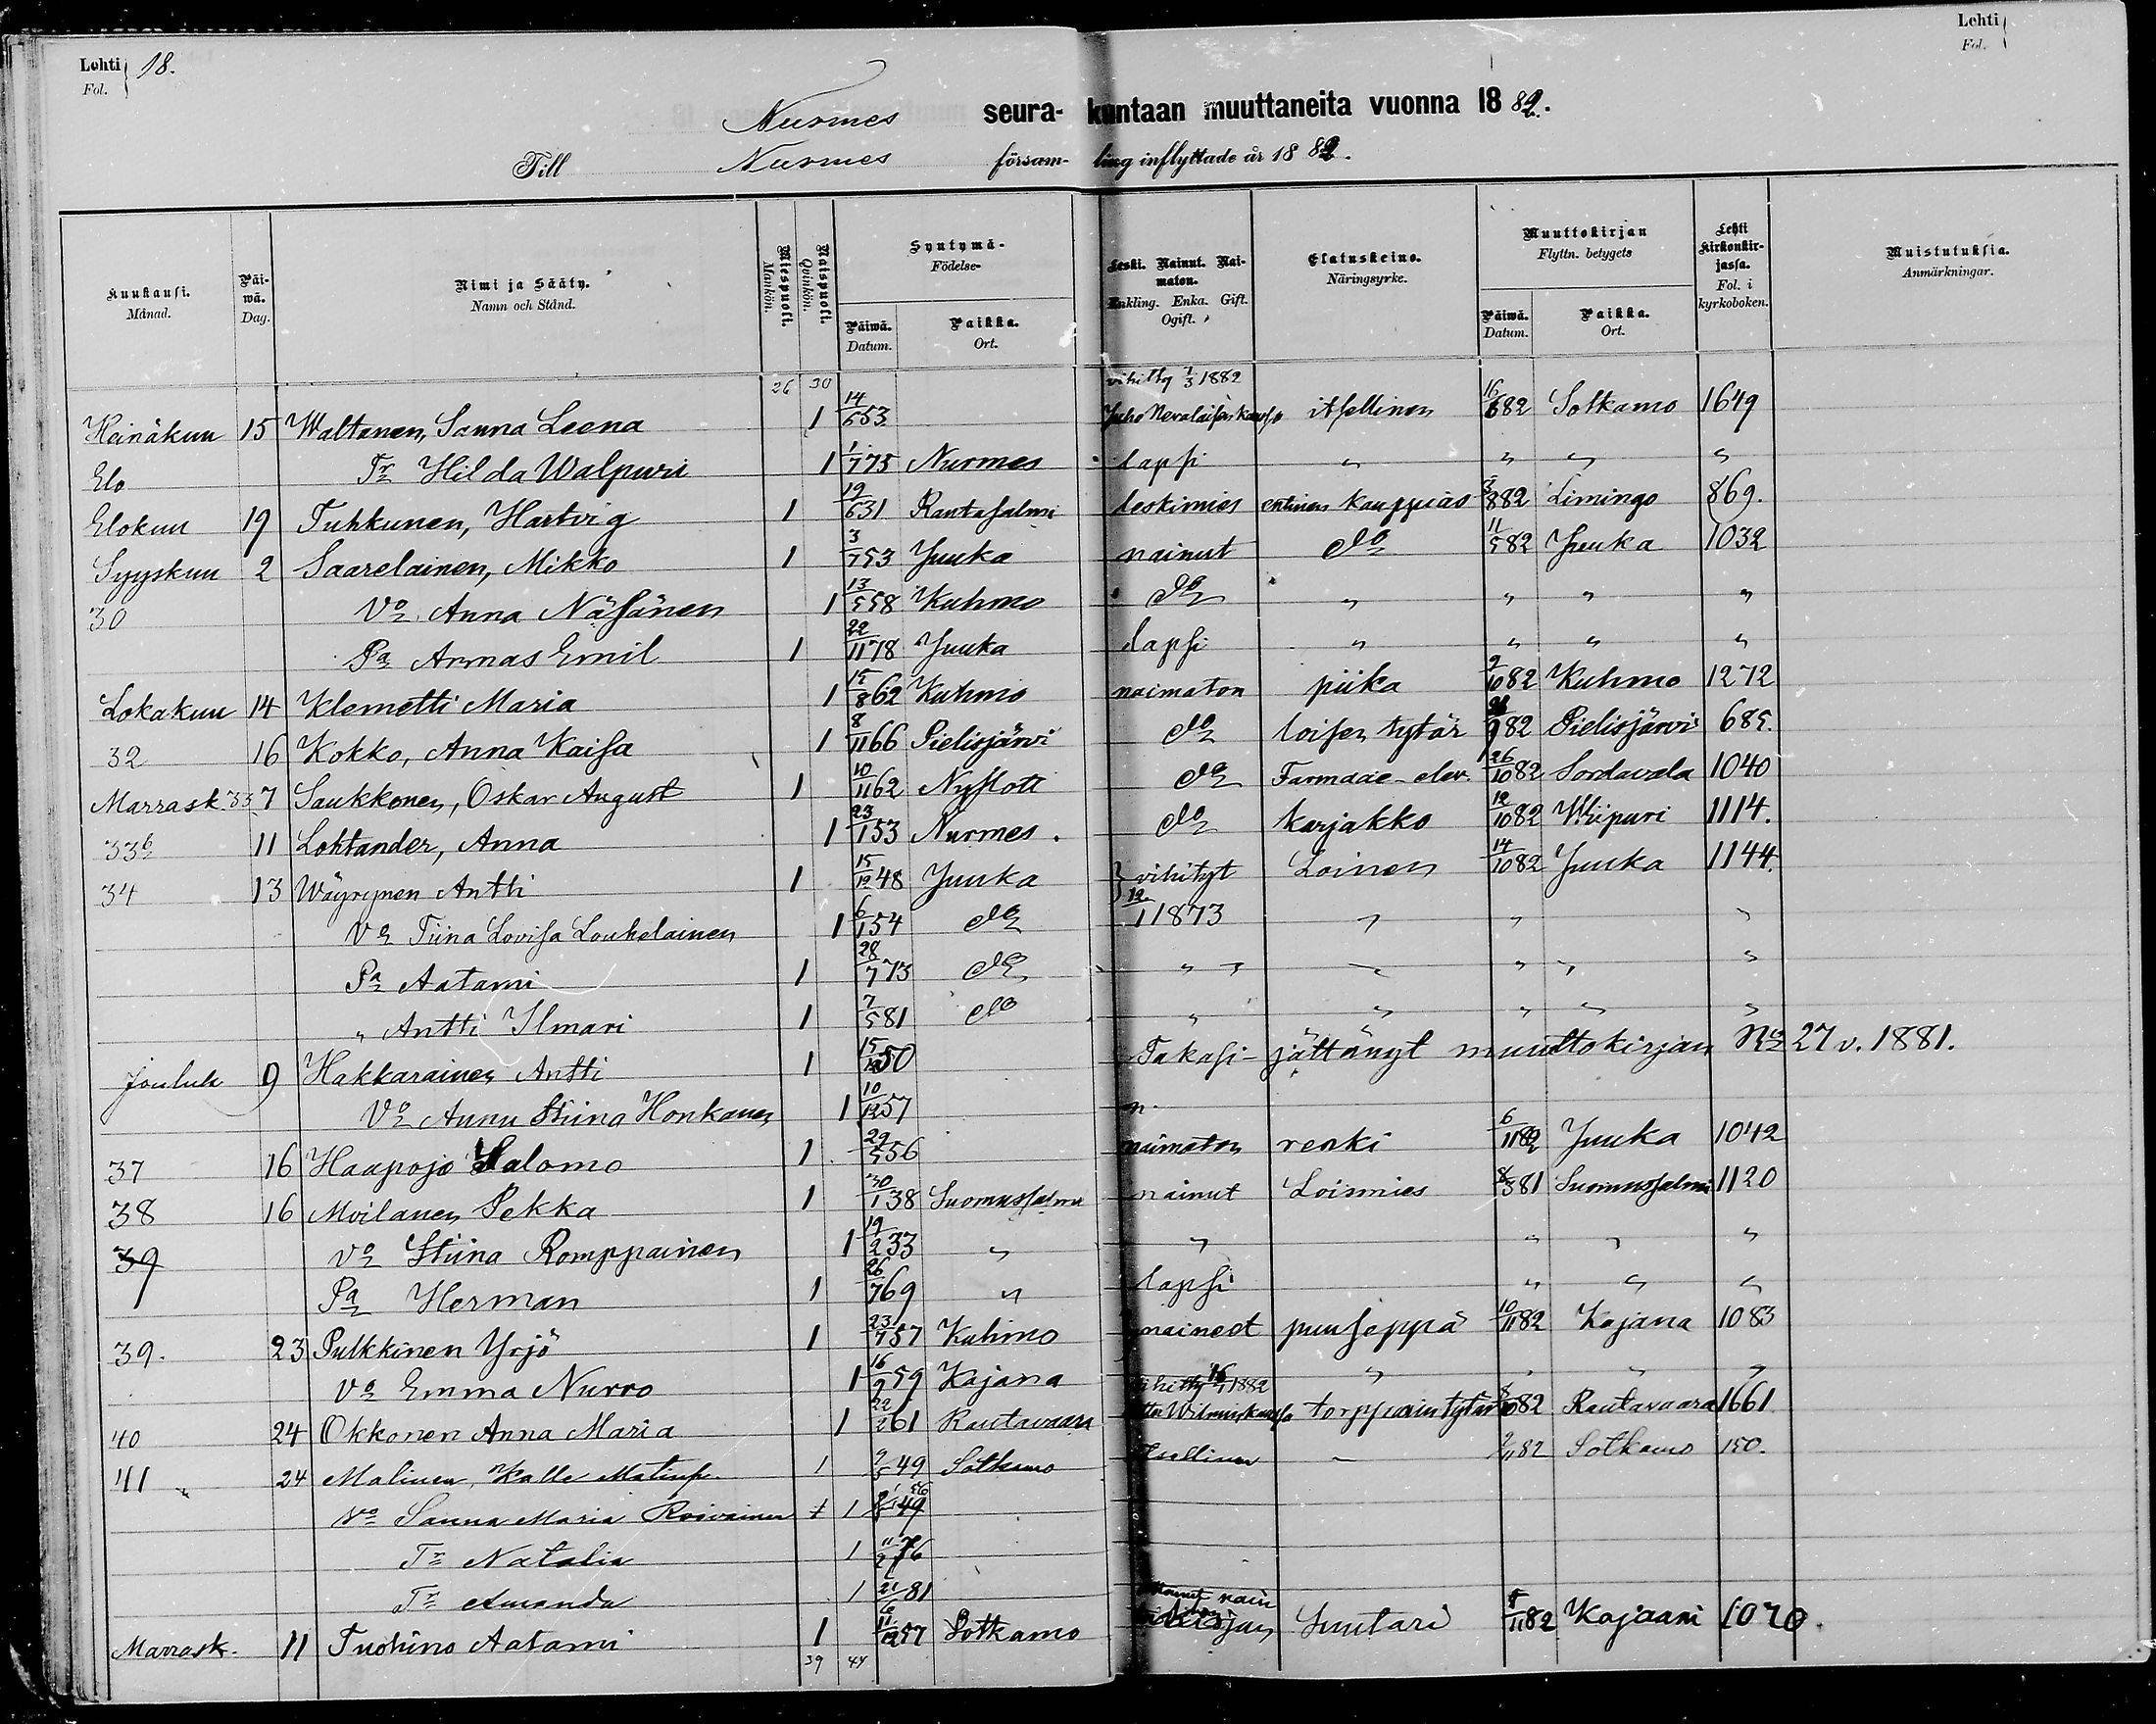 Lehti 18.
Fol.
Lehti
Fol.
Nurmes seura- kuntaan muuttaneita vuonna 1882.
Till Nurmes försam- ling inflyttade år 1882.
Kuukausi. Månad. Päi-wä. Dag. Nimi ja Sääty. Namn och Stånd. Miespuoli. Mankön. Naispuoli. Qvinkön. Syntymä- Födelse- Päiwä. Datum. Paikka. Ort. Leski. Nainut. Nai-maton. Enkling. Enka. Gift. Ogift. Elatuskeino. Näringsyrke. Muuttokirjan Flyttn. betygets Päiwä. Datum. Paikka. Ort. Lehti kirkonkir-jassa. Fol. i kyrkoboken. Muistutuksia. Anmärkningar.
26 30 vihitty 7/3 1882
Heinäkuu 15 Waltanen, Sanna Leena 1 14/6 53 Juho Nevalaisen kanssa itsellinen 16/6 82 Sotkamo 1649
Elo Tr Hilda Walpuri 1 1/7 75 Nurmes lapsi " " " "
Elokuu 19 Tuhkunen, Hartvig 1 19/6 31 Rantasalmi leskimies entinen kauppias 3/8 82 Limingo 869.
Syyskuu 2 Saarelainen, Mikko 1 3/7 53 Juuka nainut do 11/5 82 Juuka 1032
30 Vo Anna Näsänen 1 13/5 58 Kuhmo do " " " "
Pa Armas Emil 1 22/11 78 Juuka lapsi " " " "
Lokakuu 14 Klemetti Maria 1 15/8 62 Kuhmo naimaton piika 9/10 82 Kuhmo 1272
32 16 Kokko, Anna Kaisa 1 8/11 66 Pielisjärvi do loisen tytär /9 82 Pielisjärvi 685.
Marrask. 33 7 Saukkonen, Oskar August 1 10/11 62 Nyslott do Farmaac-elev. 26/10 82 Sordavala 1040
33b 11 Lohtander, Anna 1 23/1 53 Nurmes. do karjakko 12/10 82 Wiipuri 1114.
34 13 Wäyrynen Antti 1 15/12 48 Juuka } vihityt Loinen 14/10 82 Juuka 1144.
Vo Tiina Lovisa Louhelainen 1 6/1 54 do 12/1 1873 " " "
Pa Aatami 1 28/7 73 do " " " " " "
" Antti Ilmari 1 7/5 81 do " " " " "
Jouluk 9 Hakkarainen Antti 1 15/12 50 Takasi jättänyt muuttokirjan No 27 v. 1881.
Vo Annu Stiina Honkanen 1 10/12 57 "
37 16 Haapojo Salomo 1 29/5 56 naimaton renki 6/11 82 Juuka 1042
38 16 Moilanen Pekka 1 30/1 38 Suomussalmi nainut Loismies 8/3 81 Suomussalmi 1120
39 Vo Stiina Romppainen 1 19/2 33 " " " " "
Pa Herman 1 26/7 69 " lapsi " " "
39. 23 Pulkkinen Yrjö 1 23/7 57 Kuhmo naineet puuseppä 10/11 82 Kajana 1083
Vo Emma Nurro 1 16/9 59 Kajana " " " "
vihitty 1882
40 24 Okkonen Anna Maria 1 22/2 61 Rautavaara kanssa torpparin tytär 8/10 82 Rautavaara 1661
41 " 24 Malinen, Kalle Matinp. 1 9/5 49 Sotkamo Itsellinen " 2/11 82 Sotkamo 150.
Vo Sanna Maria Roivainen 1 49 56
Tr Natalia 1 76
Tr Amanda 1 21/6 81
Marrask. 11 Tuohino Aatami 1 57 Sotkamo Suutari /11 82 Kajaani 1020.
39 44